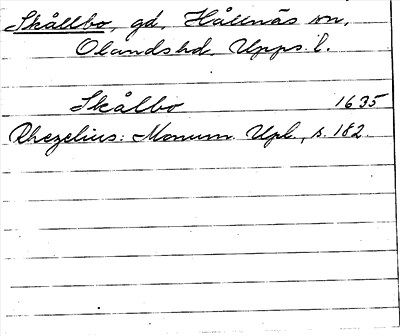 Skållbo, gd, Hållnäs sn,
Olandshd, Upps. l.
Skålbo 1635
Rhezelius: Monum. Upl., s. 182.